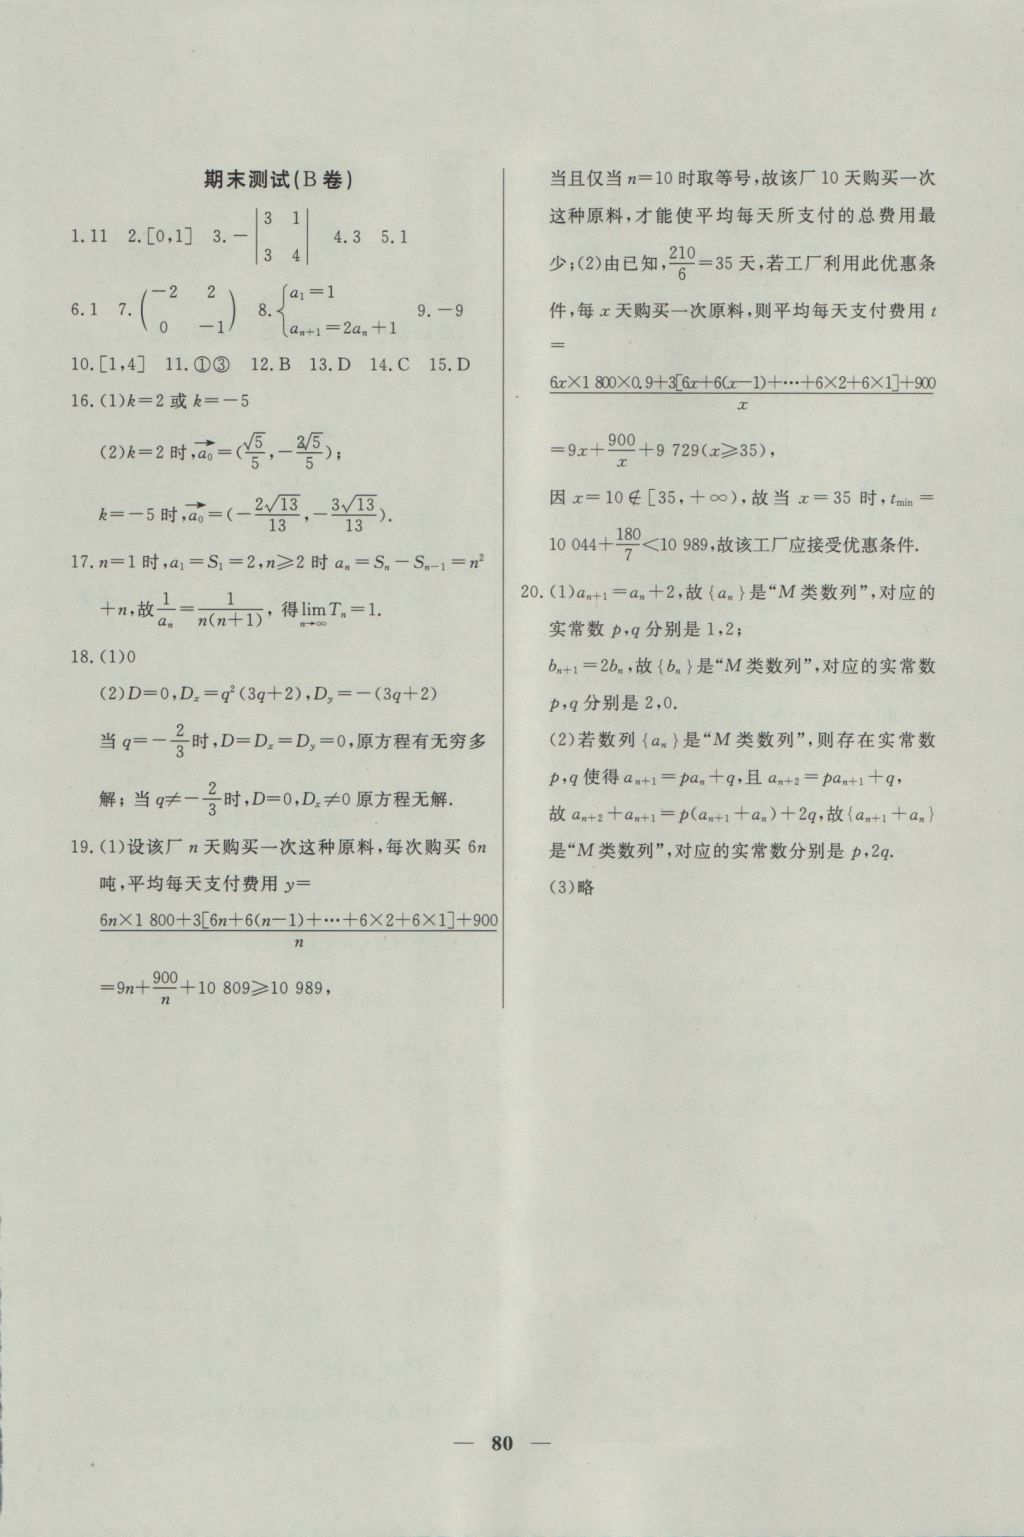 期末测试(B卷)
1.11 2.[0,1] 3.－|3 1; 3 4| 4.3 5.1
6.1 7.(－2 2; 0 －1) 8.{a₁＝1; aₙ₊₁＝2aₙ＋1 9.－9
10.[1,4] 11.①③ 12.B 13.D 14.C 15.D
16.(1)k＝2或k＝－5
(2)k＝2时,a₀→＝(√5/5,－2√5/5);
k＝－5时,a₀→＝(－2√13/13,－3√13/13).
17.n＝1时,a₁＝S₁＝2,n≥2时aₙ＝Sₙ－Sₙ₋₁＝n²
＋n,故1/aₙ＝1/n(n＋1), 得lim n→∞ Tₙ＝1.
18.(1)0
(2)D＝0,Dₓ＝q²(3q＋2),D_y＝－(3q＋2)
当q＝－2/3时,D＝Dₓ＝D_y＝0,原方程有无穷多
解;当q≠－2/3时,D＝0,Dₓ≠0原方程无解.
19.(1)设该厂n天购买一次这种原料,每次购买6n
吨,平均每天支付费用y＝
6n×1 800＋3[6n＋6(n－1)＋…＋6×2＋6×1]＋900
n
＝9n＋900/n＋10 809≥10 989,
当且仅当n＝10时取等号,故该厂10天购买一次
这种原料,才能使平均每天所支付的总费用最
少;(2)由已知,210/6＝35天,若工厂利用此优惠条
件,每x天购买一次原料,则平均每天支付费用t
＝
6x×1 800×0.9＋3[6x＋6(x－1)＋…＋6×2＋6×1]＋900
x
＝9x＋900/x＋9 729(x≥35),
因x＝10∉[35,＋∞),故当x＝35时,t_min＝
10 044＋180/7＜10 989,故该工厂应接受优惠条件.
20.(1)aₙ₊₁＝aₙ＋2,故{aₙ}是“M类数列”,对应的
实常数p,q分别是1,2;
bₙ₊₁＝2bₙ,故{bₙ}是“M类数列”,对应的实常数
p,q分别是2,0.
(2)若数列{aₙ}是“M类数列”,则存在实常数
p,q使得aₙ₊₁＝paₙ＋q,且aₙ₊₂＝paₙ₊₁＋q,
故aₙ₊₂＋aₙ₊₁＝p(aₙ₊₁＋aₙ)＋2q,故{aₙ₊₁＋aₙ}
是“M类数列”,对应的实常数分别是p,2q.
(3)略
— 80 —